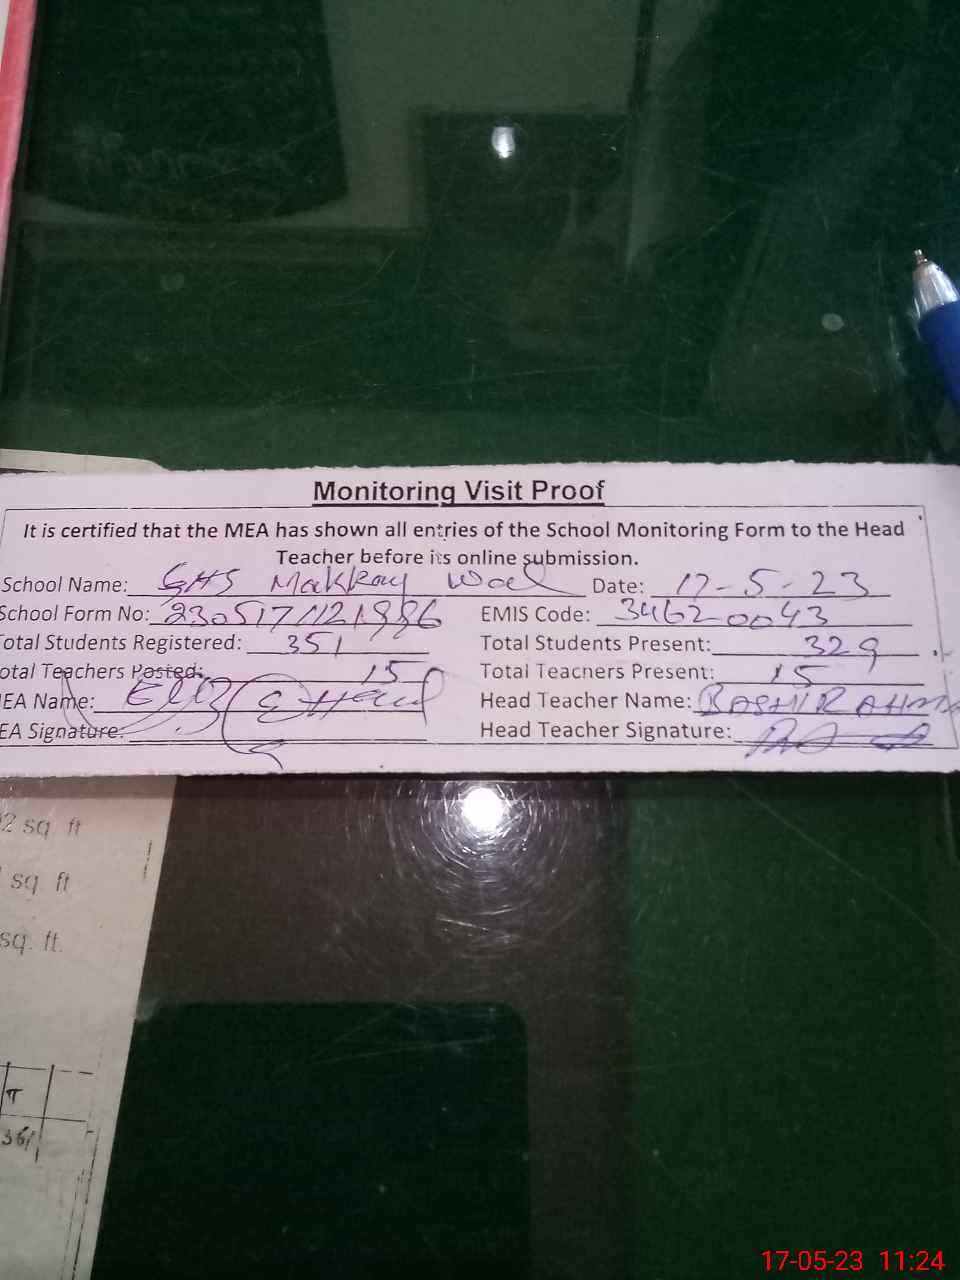 Monitoring Visit Proof
It is certified that the MEA has shown all entries of the School Monitoring Form to the Head
Teacher before its online submission.
School Name: GHS Makkay Wal Date: 17-5-23
School Form No: 2305171121886 EMIS Code: 34620043
Total Students Registered: 351 Total Students Present: 329
otal Teachers Posted: 15 Total Teachers Present: 15
EA Name: Head Teacher Name: BASHIR AHM
EA Signature: Head Teacher Signature:
2 sq. ft
sq. ft
sq. ft.
π
36/
17-05-23 11:24